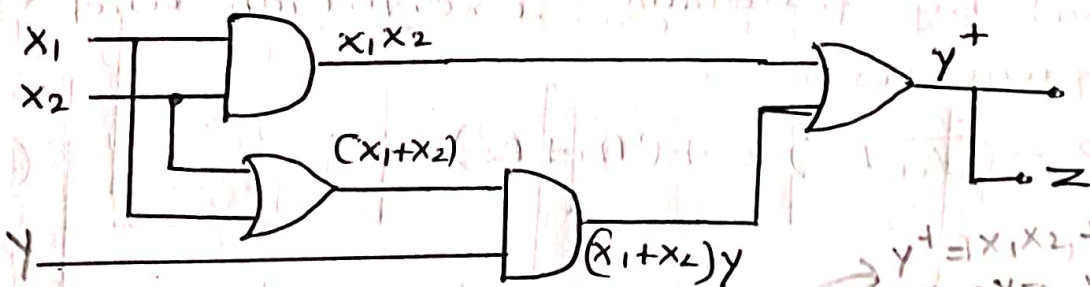 X1
x1x2
y+
X2
(x1+x2)
Z
Y
(x1+x2)y
y+ = x1x2